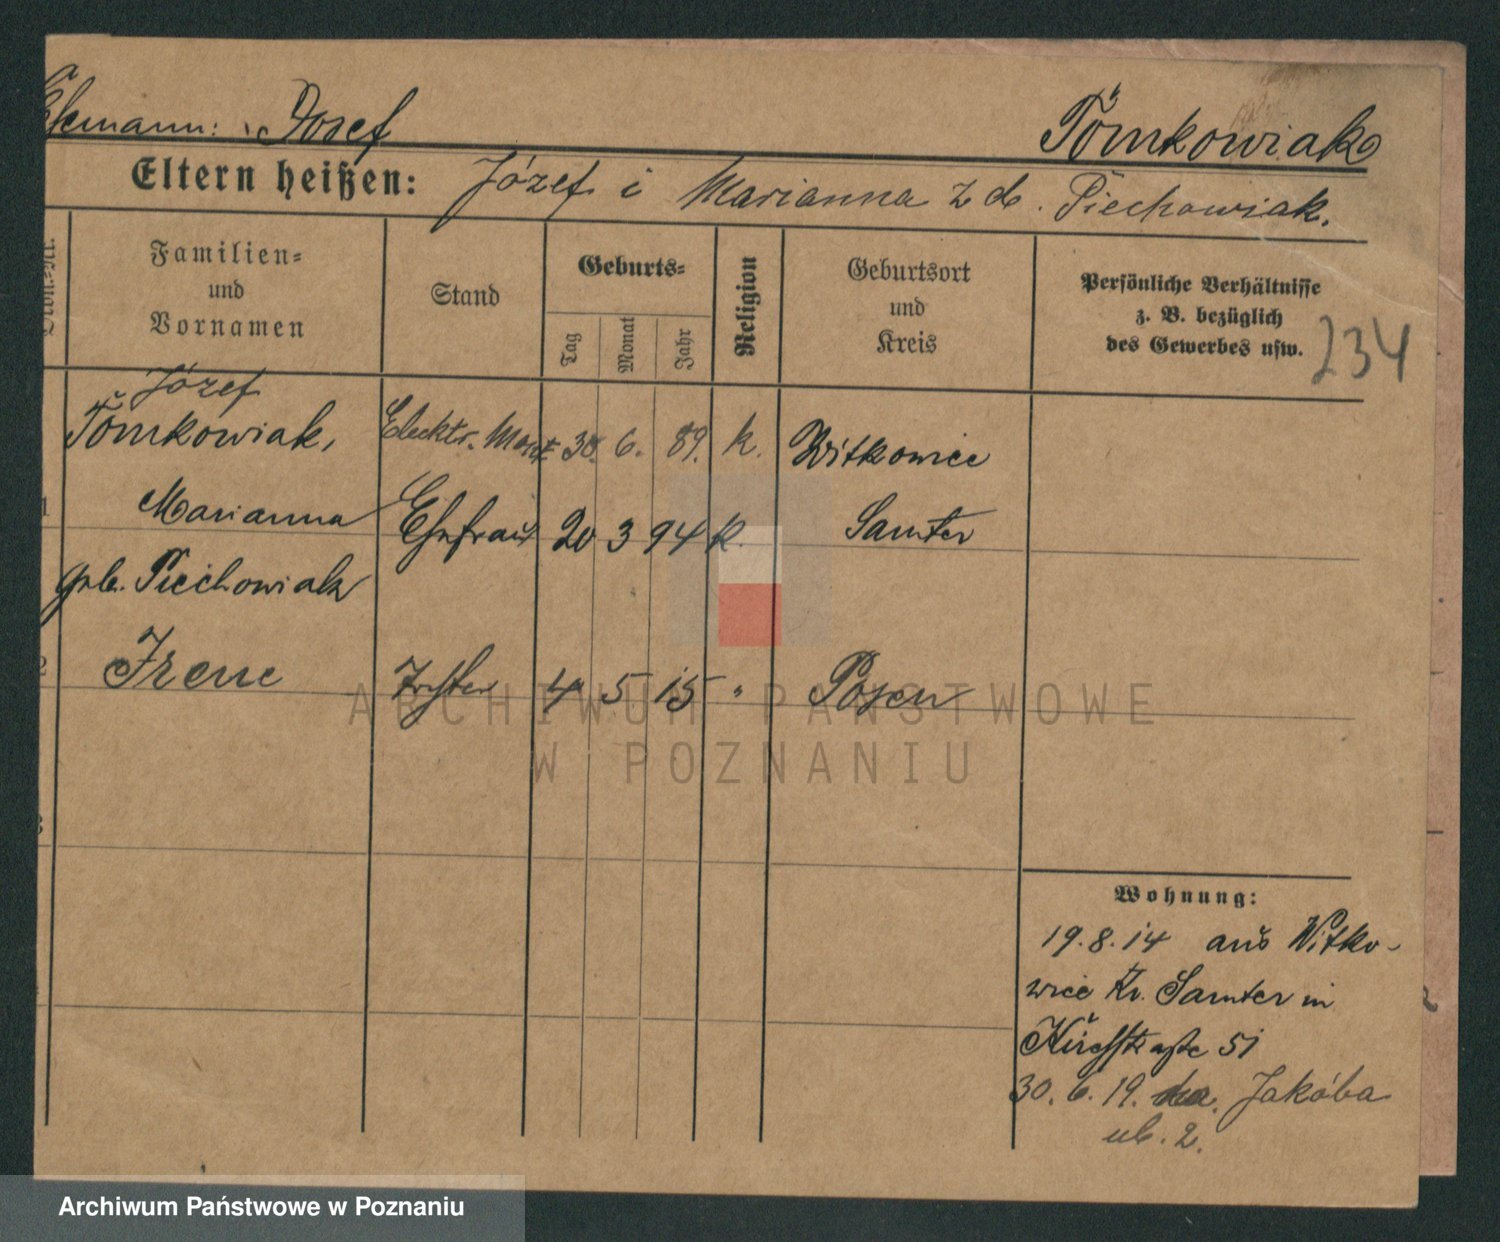 Ehemann: Josef Tomkowiak
Eltern heißen: Józef i Marianna z d. Piechowiak.
Familien-
und
Vornamen
Stand
Geburts-
Tag
Monat
Jahr
Religion
Geburtsort
und
Kreis
Persönliche Verhältnisse
z. B. bezüglich
des Gewerbes usw.
234
Józef
Tomkowiak, Elecktr. Mont. 30. 6. 89. k. Witkowice
1 Marianna Ehefrau 20 3 94 k. Samter
geb. Piechowiak
2 Irene Tochter 4 5 15 " Posen
Wohnung:
19.8.14 aus Witko-
wice Kr. Samter in
30. 6. 19. Jakóba
ul. 2.
ARCHIWUM PAŃSTWOWE
W POZNANIU
Archiwum Państwowe w Poznaniu